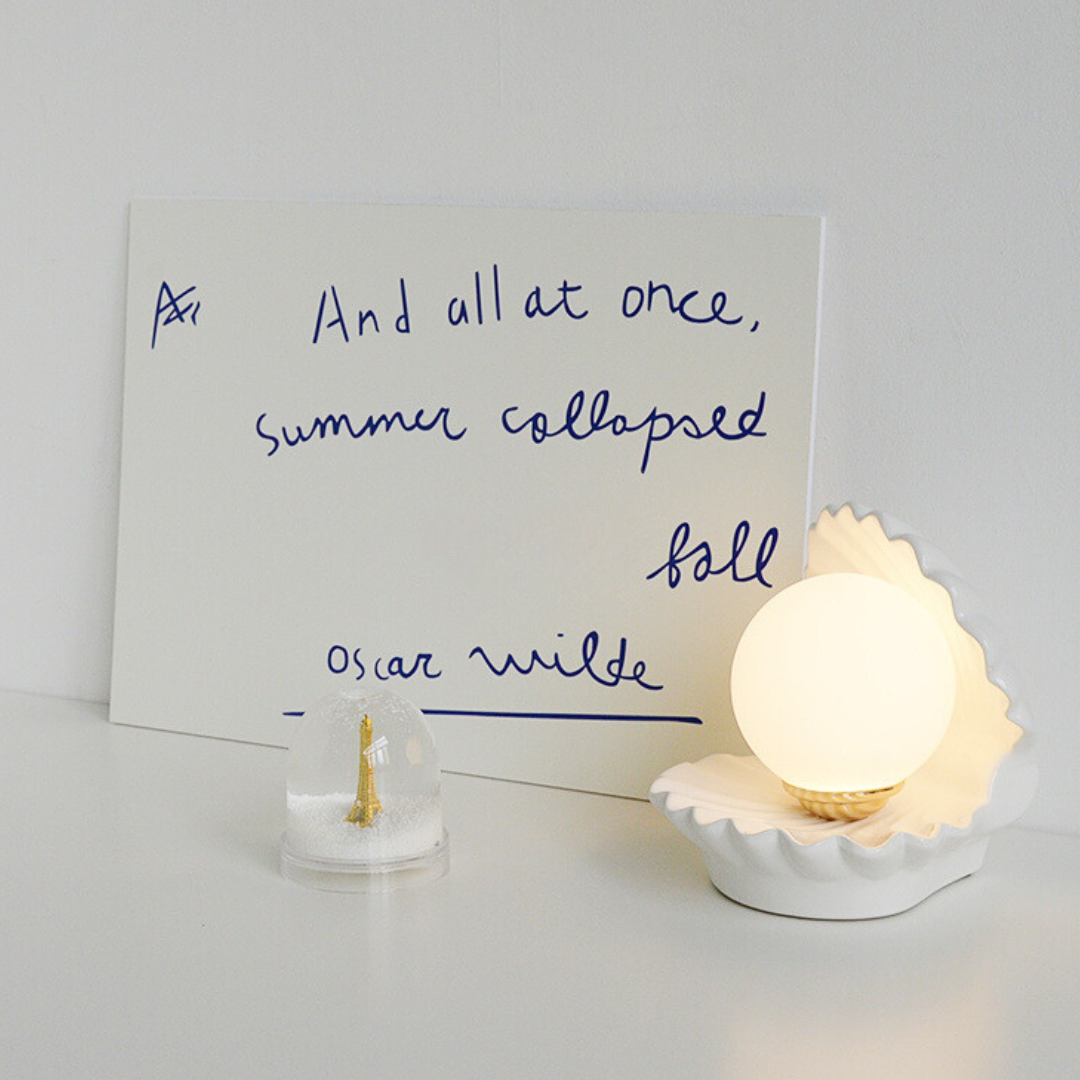 And all at once,
summer collapsed
fall
oscar wilde